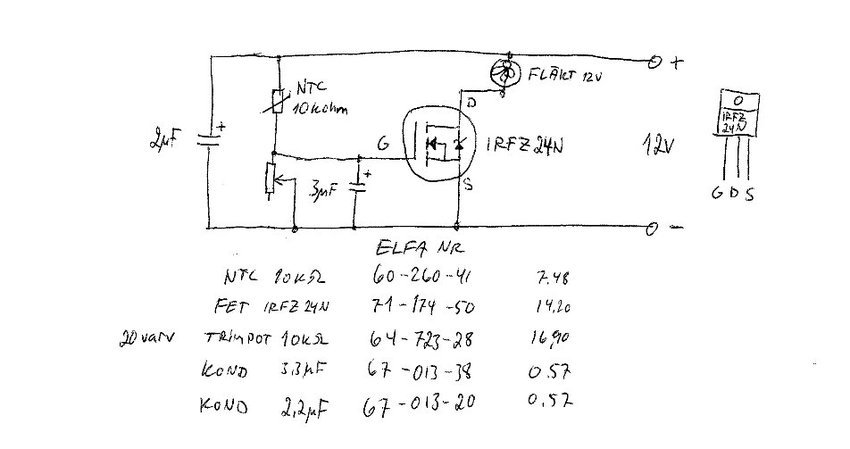 +
FLÄKT 12V
NTC
10kohm
D
IRFZ
24N
2µF
+
G
IRFZ 24N
12V
+
3µF
S
G D S
-
ELFA NR
NTC 10KΩ 60-260-41 7.48
FET IRFZ24N 71-174-50 14.20
20 varv TRIMPOT 10KΩ 64-723-28 16,90
KOND 3,3µF 67-013-38 0.57
KOND 2,2µF 67-013-20 0.52